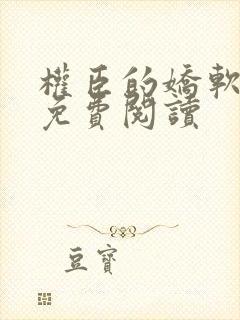 權臣的嬌軟
免費閱讀
豆寶